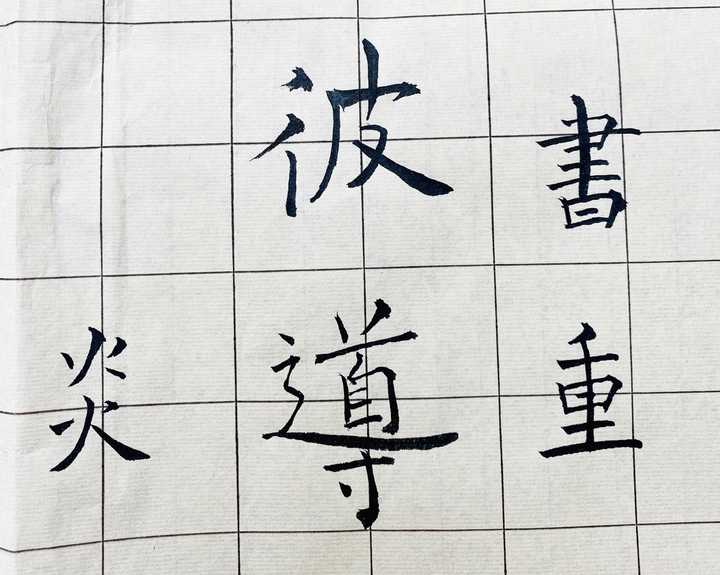 書重
彼導
炎